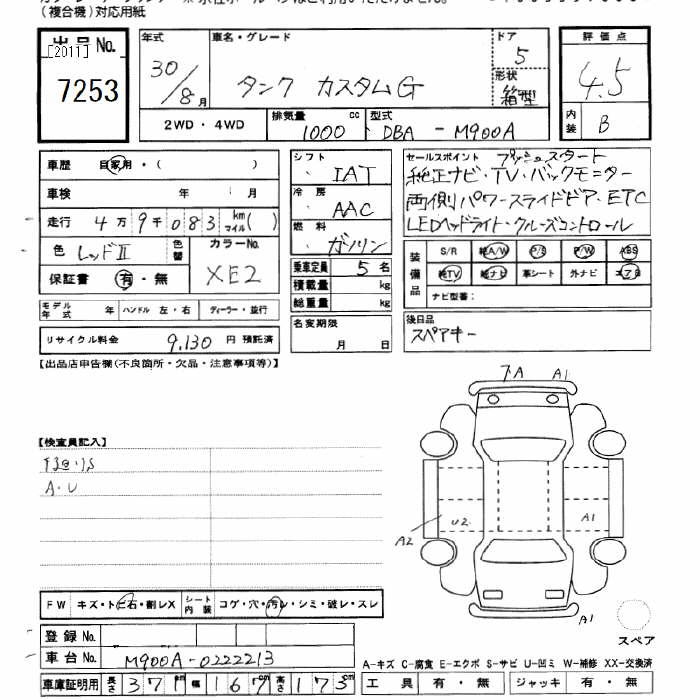 (複合機)対応用紙
出品 No.
[2011]
7253
年式
30/8月
車名・グレード
タンク カスタムG
ドア
5
形状
箱型
評価点
4.5
内装
B
2WD・4WD
排気量
1000 cc
型式
DBA - M900A
車歴 自家用・( )
車検 年 月
走行 4万9千083 km マイル( )
色 レッドⅡ
色替
カラーNo.
XE2
保証書 有・無
モデル年式 年 ハンドル 左・右 ディーラー・並行
リサイクル料金 9,130 円 預託済
シフト
IAT
冷房
AAC
燃料
ガソリン
乗車定員 5名
積載量 kg
総重量 kg
名変期限
月 日
セールスポイント プッシュスタート
純正ナビ・TV・バックモニター
両側パワースライドドア・ETC
LEDヘッドライト・クルーズコントロール
装備品
S/R 純A/W P/S P/W ABS
純TV 純ナビ 革シート 外ナビ エアB
ナビ型番:
後日品
スペアキー
【出品店申告欄(不良箇所・欠品・注意事項等)】
【検査員記入】
A・U
A1
U2
A1
A2
A1
スペア
FW キズ・トビ石・割レX
シート内装 コゲ・穴・汚レ・シミ・破レ・スレ
登録 No.
車台 No. M900A-0222213
車庫証明用 長さ 371 幅 167 高さ 173 cm
A-キズ C-腐食 E-エクボ S-サビ U-凹ミ W-補修 XX-交換済
工具 有・無 ジャッキ 有・無